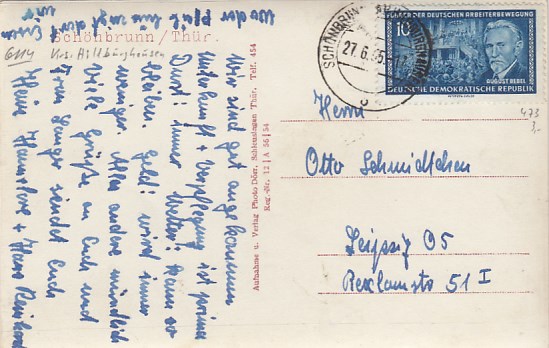 Schönbrunn/Thür.
6114 Krs. Hildburghausen
Wo der Platz ist zeigt der
wir
Wir sind gut angekommen
Unterkunft + Verpflegung ist prima
Durst: immer Wetter: kann so
bleiben. Geld: wird immer
weniger. Alles andere mündlich
Viele Grüße an Euch und
Frau Langer sendet Euch
Heinz Hannelore + Hans Reinhard
Aufnahme u. Verlag Photo Dörr, Schleusingen Thür. Telf. 454
Reg.-Nr. 12 | A 36 | 54
SCHÖNBRUNN
27.6.55
FÜHRER DER DEUTSCHEN ARBEITERBEWEGUNG
10
AUGUST BEBEL
DEUTSCHE DEMOKRATISCHE REPUBLIK
473
3,-
Herrn
Otto Schmidtchen
Leipzig O5
Reklamstr 51 I